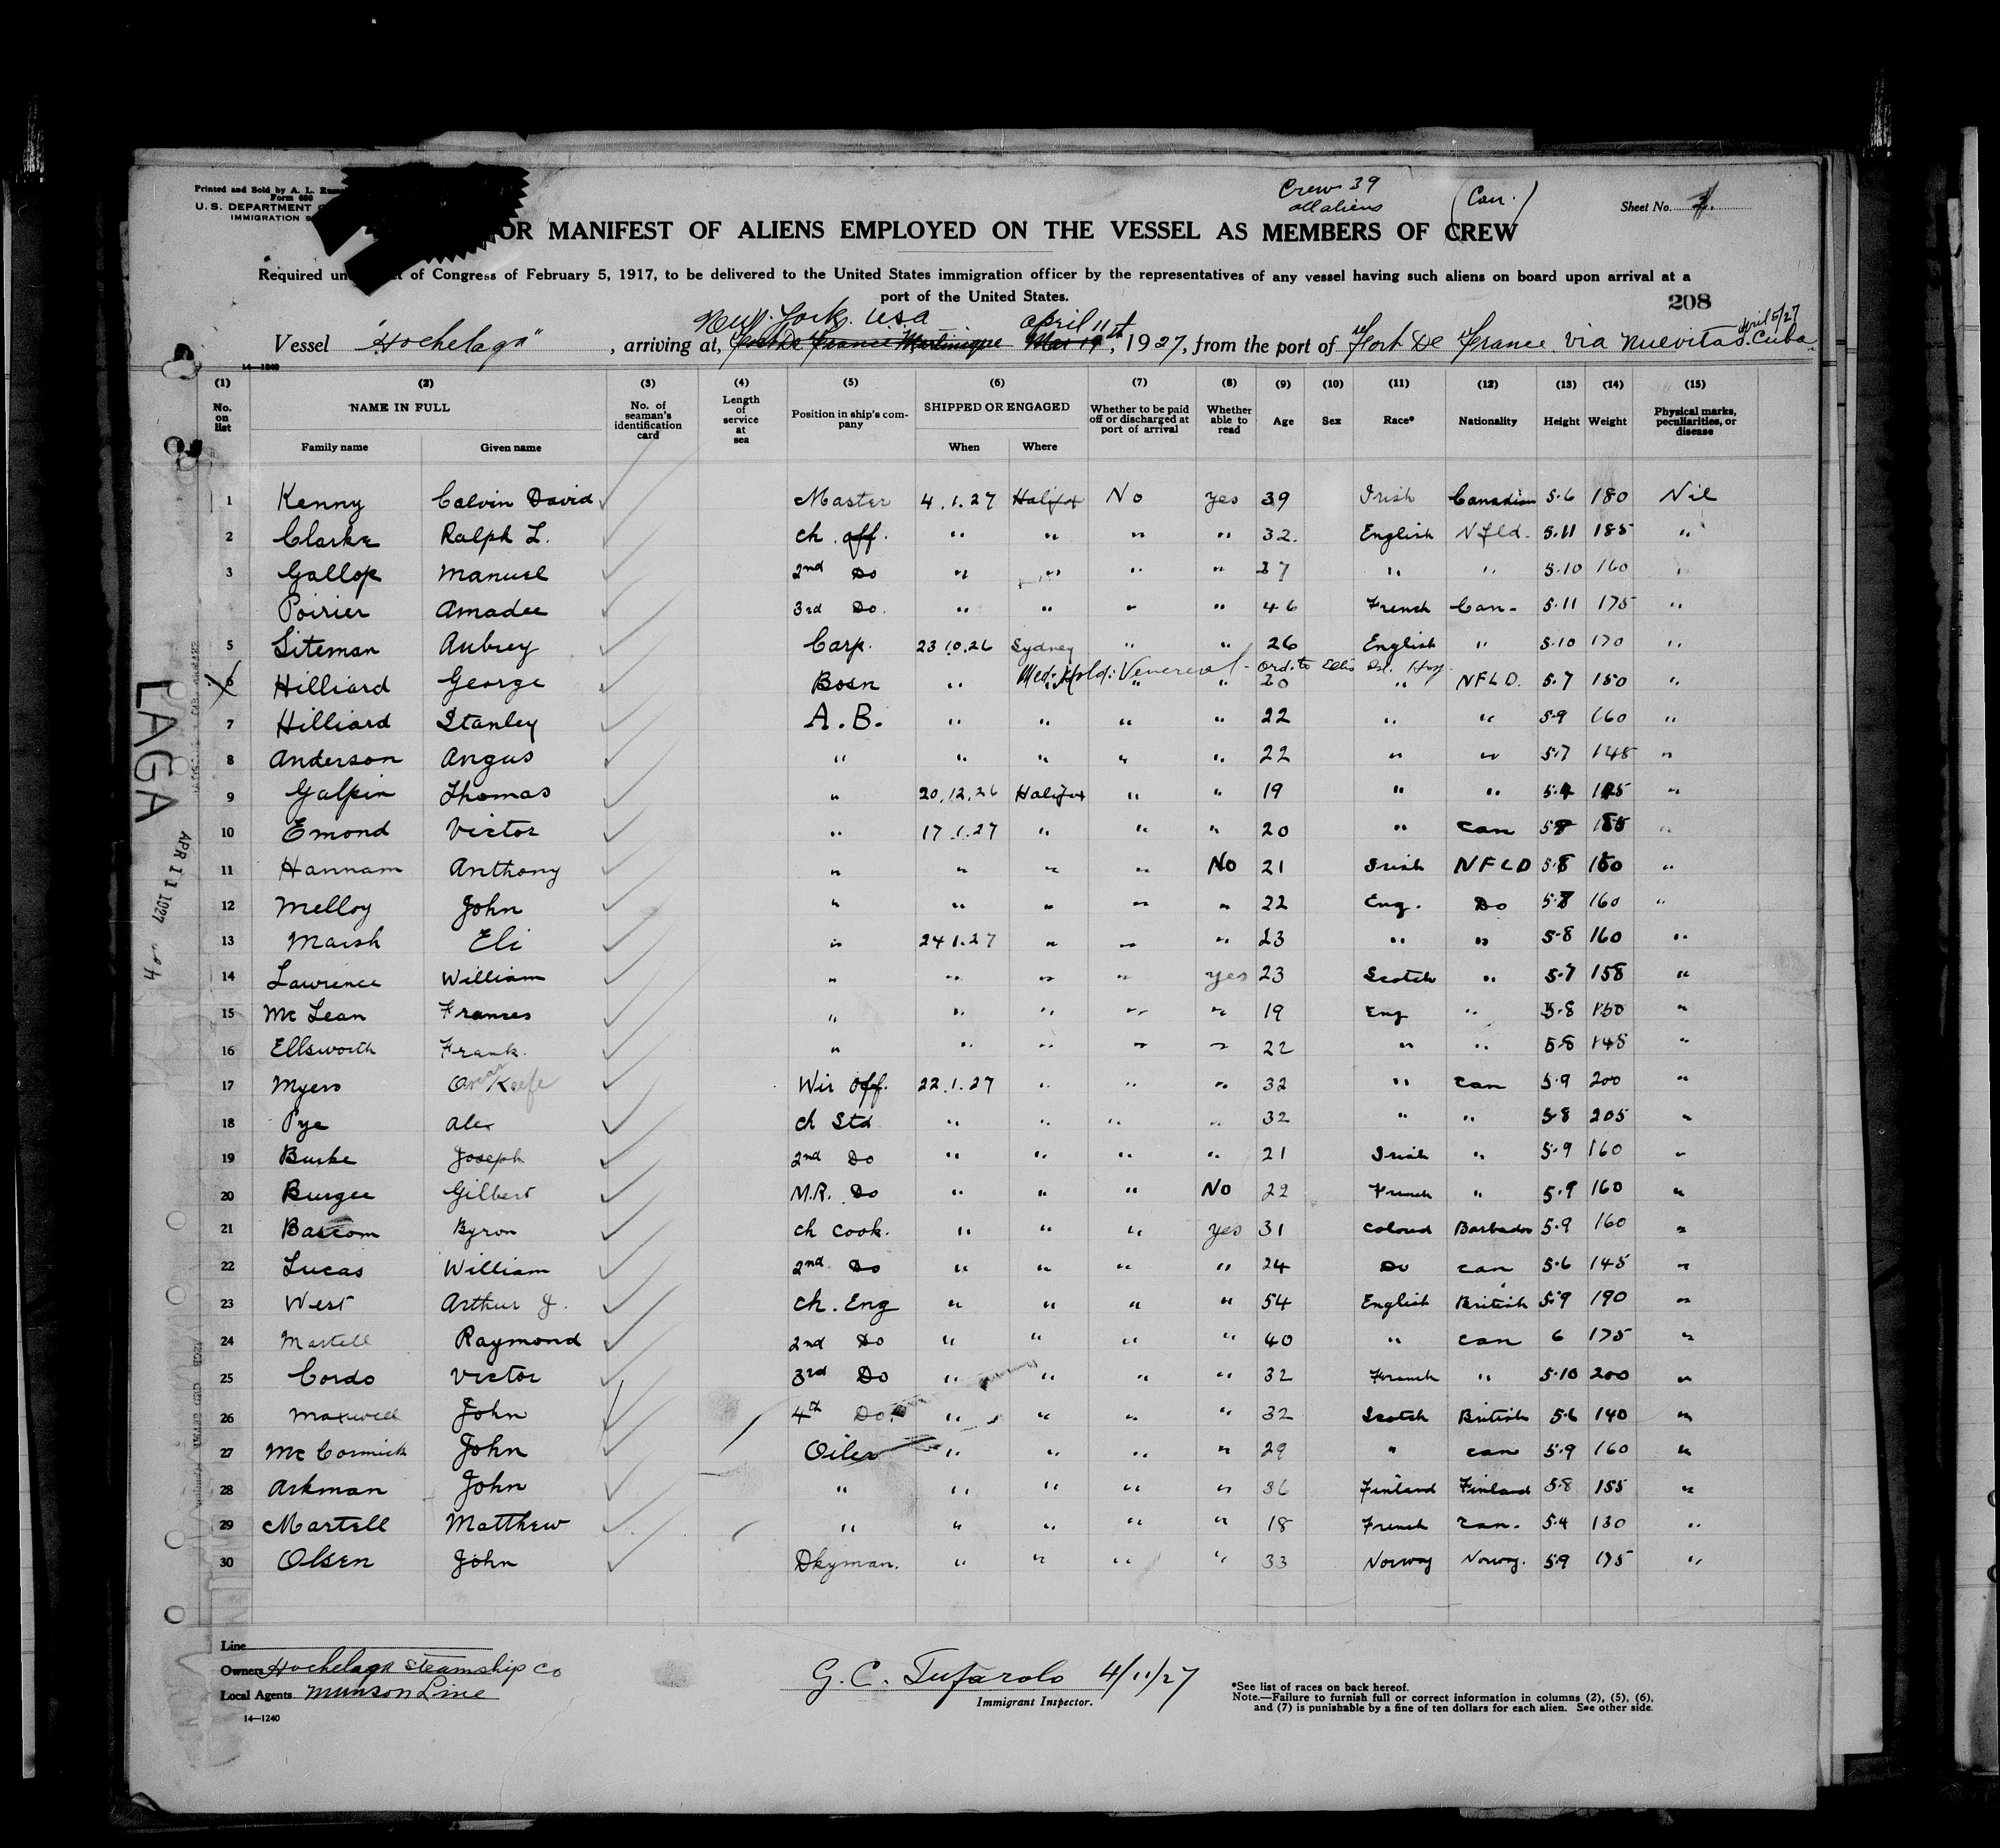 Printed and Sold by A. L.
Form 680
U. S. DEPARTMENT
IMMIGRATION
Crew 39
all aliens
(Can.)
Sheet No. 1.
OR MANIFEST OF ALIENS EMPLOYED ON THE VESSEL AS MEMBERS OF CREW
Required of Congress of February 5, 1917, to be delivered to the United States immigration officer by the representatives of any vessel having such aliens on board upon arrival at a
port of the United States.
208
New York. U.S.A April 11th April 5/27
Vessel "Hochelaga", arriving at, Fort De France Martinique Mar 19, 1927, from the port of Fort De France via Nuevitas. Cuba.
14—1240
(1) (2) (3) (4) (5) (6) (7) (8) (9) (10) (11) (12) (13) (14) (15)
No. on list NAME IN FULL Family name Given name No. of seaman's identification card Length of service at sea Position in ship's company SHIPPED OR ENGAGED When Where Whether to be paid off or discharged at port of arrival Whether able to read Age Sex Race* Nationality Height Weight Physical marks, peculiarities, or disease
1 Kenny Calvin David Master 4.1.27 Halifax No yes 39 Irish Canadian 5.6 180 Nil
2 Clarke Ralph L. ch. off. " " " " 32. English Nfld. 5.11 185 "
3 Gallop Manuel 2nd Do " " " " 37 " " 5.10 160 "
Poirier Amadee 3rd Do. " " " " 46 French Can- 5.11 175 "
5 Siteman Aubrey Carp. 23.10.26 Sydney " " 26 English " 5.10 170 "
Med. Hold: Venereal - Ord. to Ellis Isl. Hosp.
6 Hilliard George Bosn " " " " 20 " NFLD. 5.7 150 "
7 Hilliard Stanley A.B. " " " " 22 " " 5.9 160 "
8 Anderson Angus " " " " " 22 " " 5.7 145 "
9 Galpin Thomas " 20.12.26 Halifax " " 19 " " 5.4 "
10 Emond Victor " 17.1.27 " " " 20 " Can 5.8 "
11 Hannam Anthony " " " " No 21 Irish NFLD 5.8 150 "
12 Melloy John " " " " " 22 Eng. Do 5.8 160 "
13 Marsh Eli " 24.1.27 " " " 23 " " 5.8 160 "
14 Lawrence William " " " " yes 23 Scotch " 5.7 158 "
15 McLean Frances " " " " " 19 Eng " 5.8 150 "
16 Ellsworth Frank. " " " " " 22 " " 5.8 148 "
17 Myers Keefe Wir off. 22.1.27 " " " 32 " Can 5.9 200 "
18 Pye Alex ch Std " " " " 32 " " 5.8 205 "
19 Burke Joseph 2nd Do " " " " 21 Irish " 5.9 160 "
20 Burgee Gilbert M.R. Do " " " No 22 French " 5.9 160 "
21 Bascom Byron ch cook. " " " yes 31 Colored Barbados 5.9 160 "
22 Lucas William 2nd Do " " " " 24 Do Can 5.6 145 "
23 West Arthur J. ch. Eng " " " " 54 English British 5.9 190 "
24 Martell Raymond 2nd Do " " " " 40 " Can 6 175 "
25 Cordo Victor 3rd Do " " " " 32 French " 5.10 200 "
26 Maxwell John 4th Do. " " " " 32 Scotch British 5.6 140 "
27 McCormick John Oiler " " " " 29 " Can 5.9 160 "
28 Arkman John " " " " " 36 Finland Finland 5.8 155 "
29 Martell Matthew " " " " " 18 French Can. 5.4 130 "
30 Olsen John Dkyman. " " " " 33 Norway Norwg. 5.9 175 "
LAGA
APR 11 1927
Line
Owners Hochelaga Steamship Co
Local Agents Munson Line
14—1240
G. C. Tufarolo 4/11/27
Immigrant Inspector.
*See list of races on back hereof.
Note.—Failure to furnish full or correct information in columns (2), (5), (6),
and (7) is punishable by a fine of ten dollars for each alien. See other side.